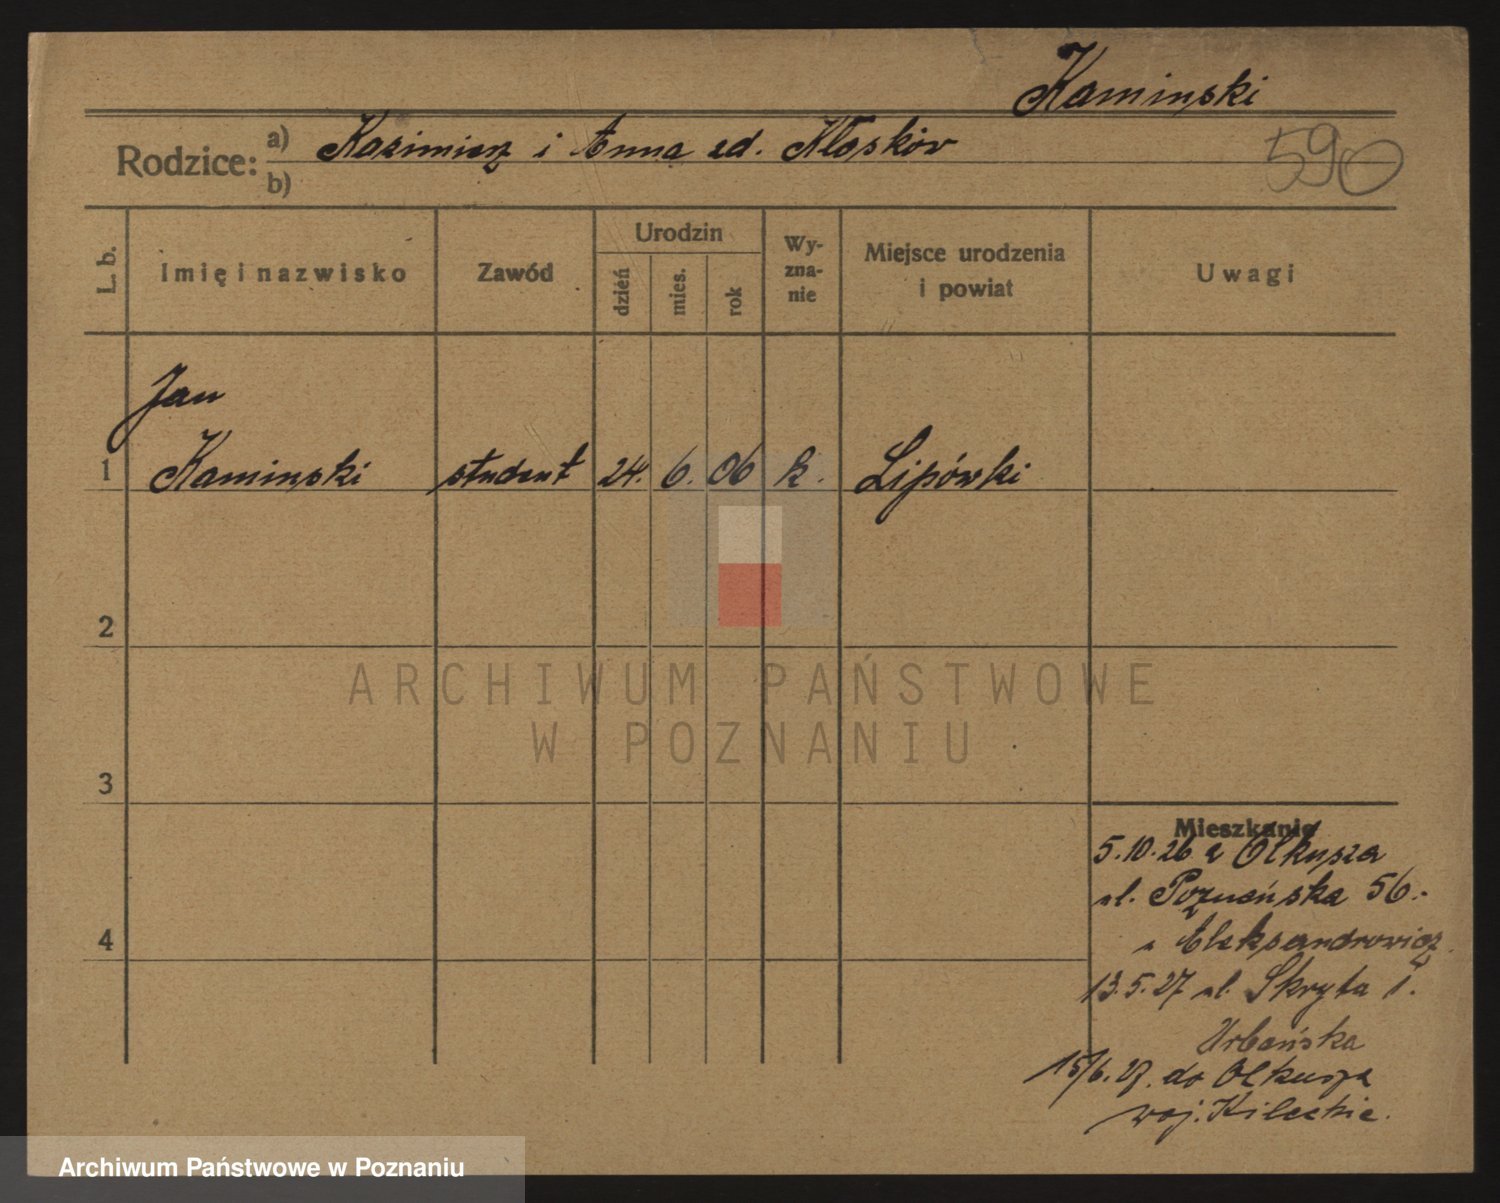 Kaminski
590
Rodzice: a) Kazimierz i Anna zd. Kłosków
b)
L. b.
Imię i nazwisko
Zawód
Urodzin
dzień
mies.
rok
Wy-
zna-
nie
Miejsce urodzenia
i powiat
Uwagi
Jan
1 Kaminski student 24. 6. 06 k. Lipówki
2
ARCHIWUM PAŃSTWOWE
W POZNANIU
3
Mieszkanie
5.10.26 z Olkusza
ul. Poznańska 56.
u Aleksandrowicz
4
13.5.27 ul. Skryta 1.
Urbańska
15/6.27. do Olkusza
woj. Kileckie.
Archiwum Państwowe w Poznaniu